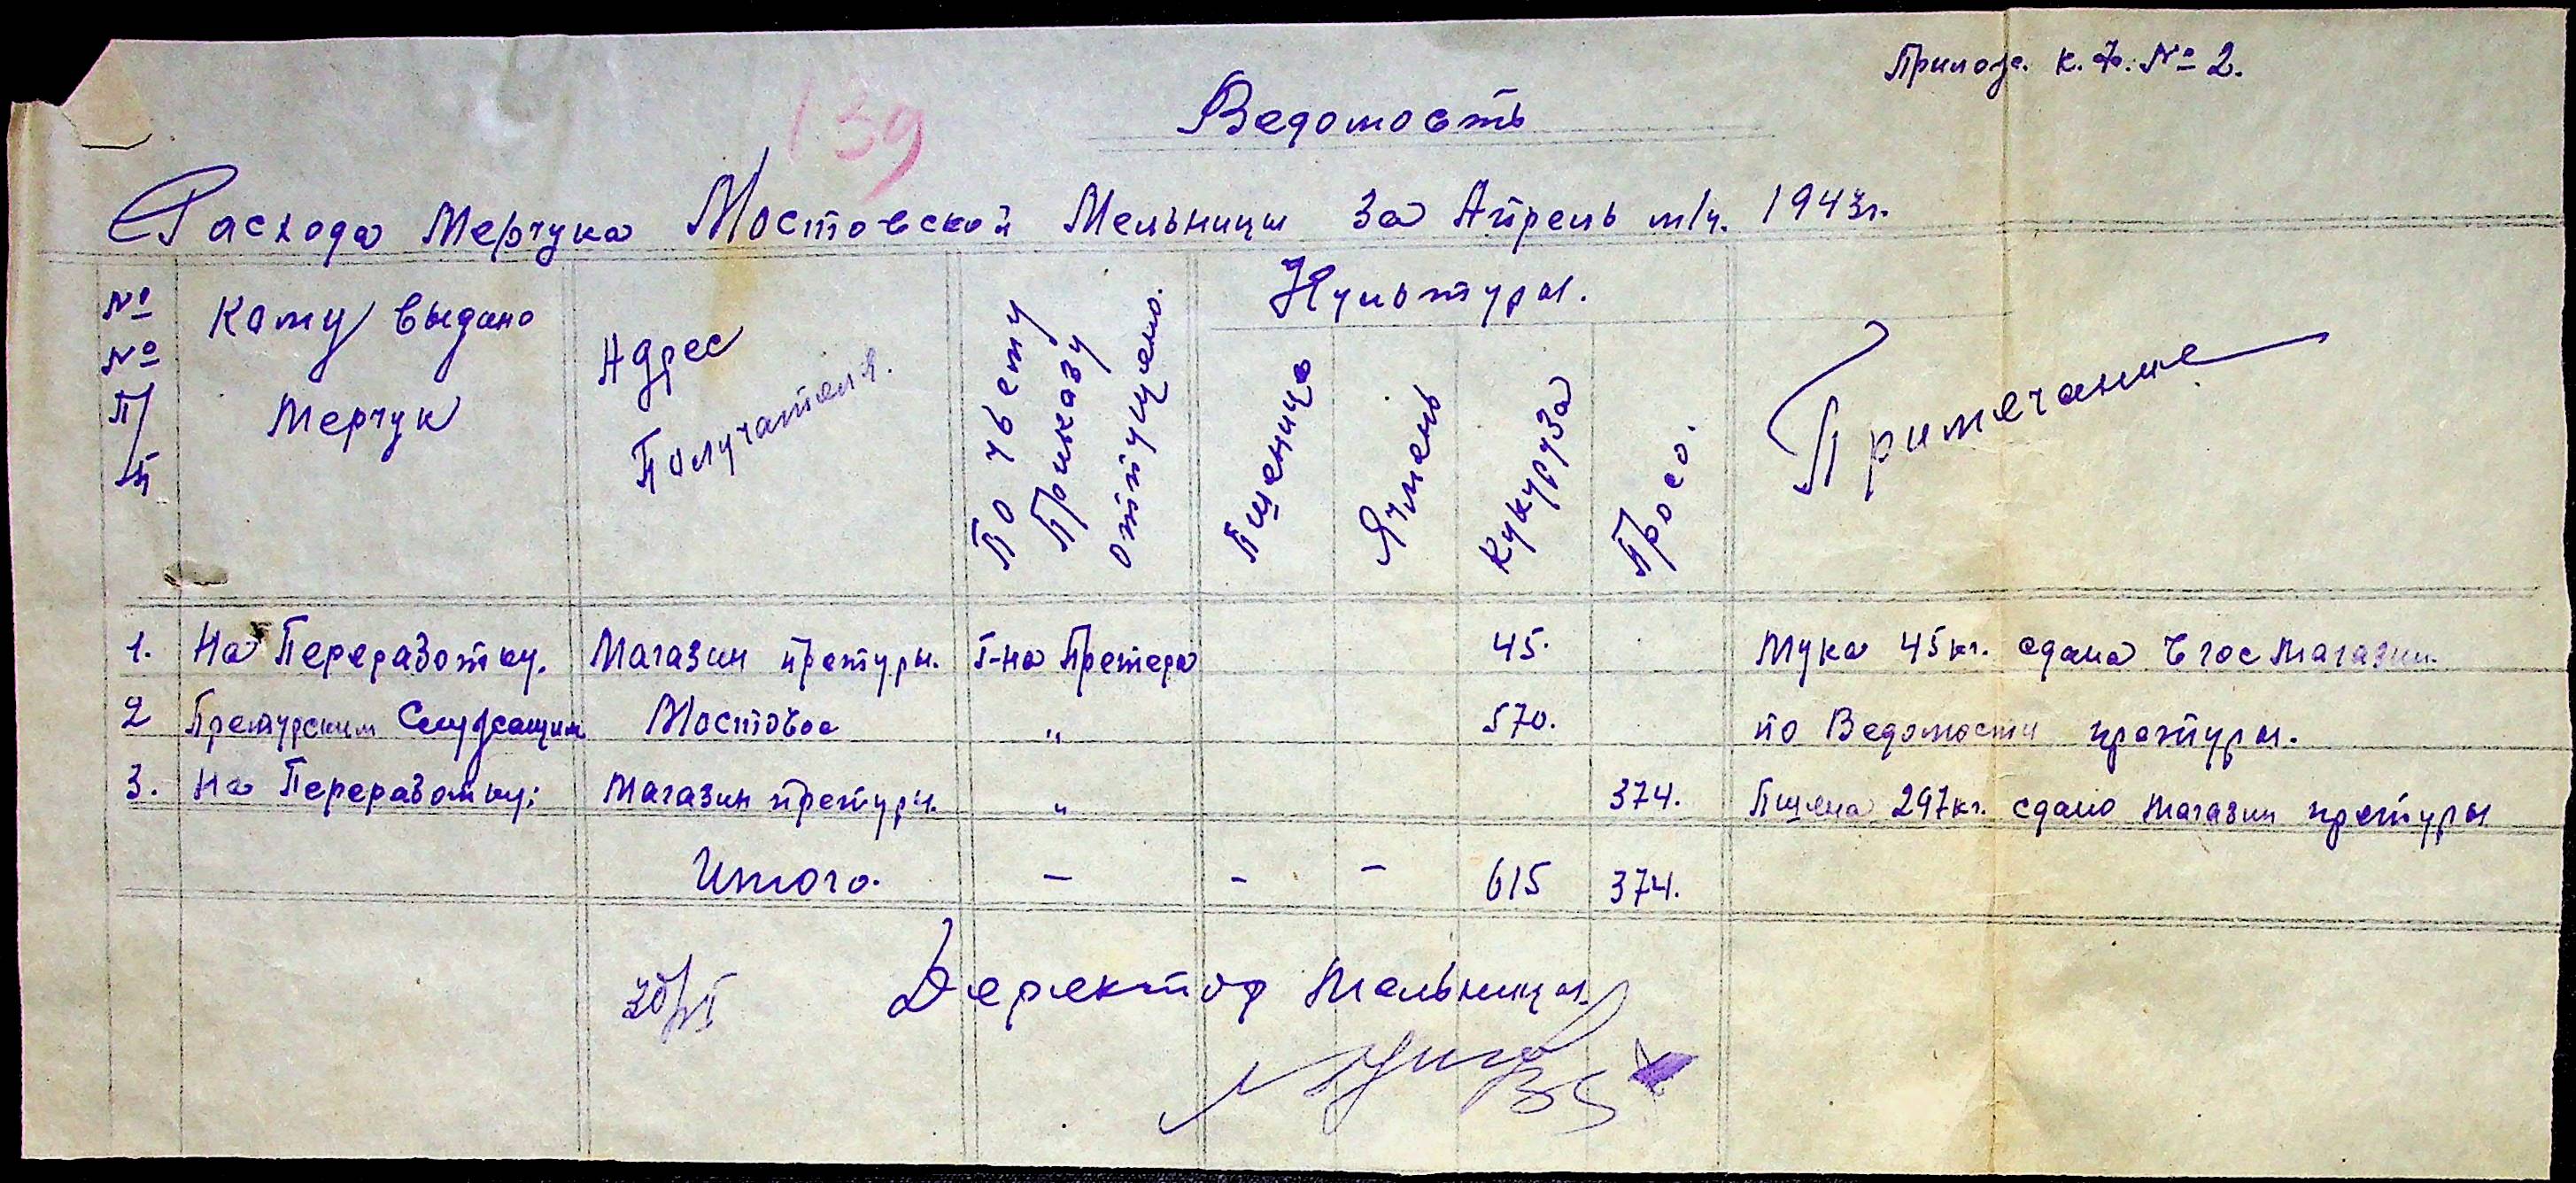 Прилож. к. ф. № 2.
139
Ведомость
Расхода Мерчука Мостовской Мельницы за Апрель м/ц. 1943г.
№ № П/П
Кому выдано Мерчук
Адрес Получателя.
По чьему Приказу отпущено.
Культуры.
Пшеница
Ячмень
Кукуруза
Просо.
Примечание
1. На Переработку. Магазин претуры. Г-на Претера 45. Мука 45кг. сдана в гос магазин.
2 Претурским Служащим Мостовое " 570. по Ведомости претуры.
3. На Переработку; Магазин претуры. " 374. Пшена 297кг. сдано магазин претуры
Итого. - - - 615 374.
Деректор мельницы.